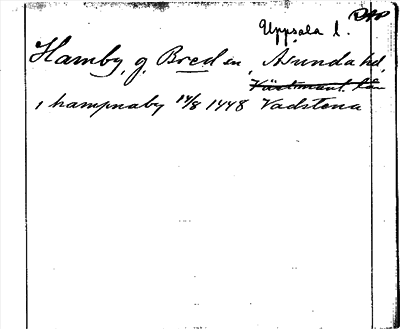 Uppsala l.
Hamby, g. Bred sn, Asunda hd,
Västmanl. län
, hampnaby 14/8 1448 Vadstena